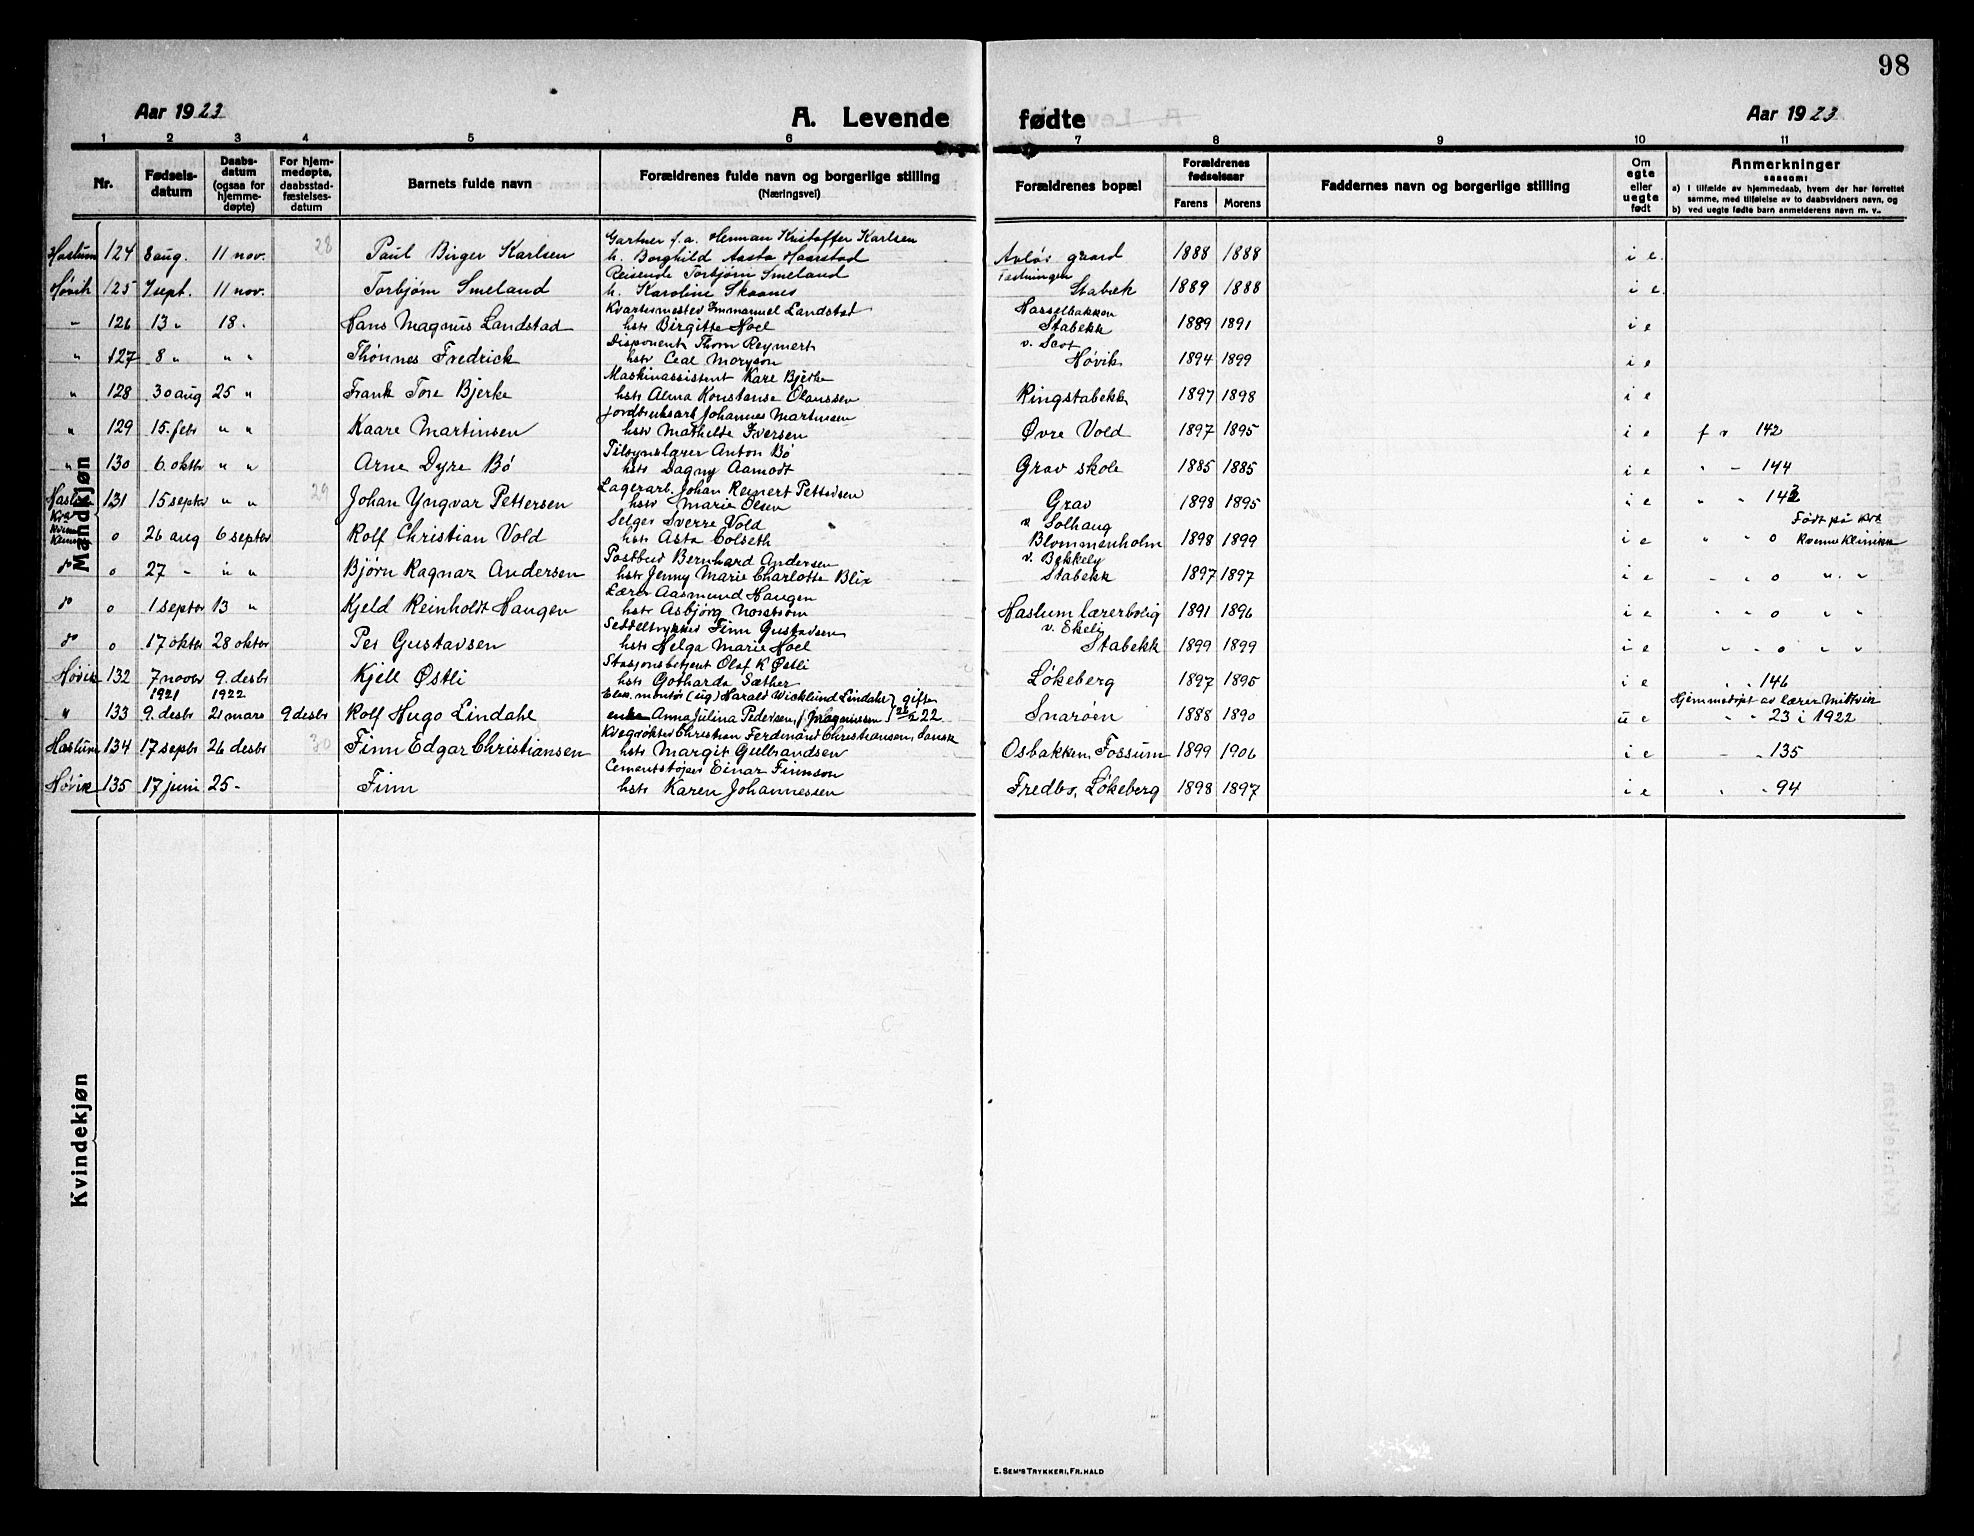 98
Aar 1923 A. Levende fødte Aar 1923
1 2 3 4 5 6 7 8 9 10 11
Nr.
Fødsels-
datum
Daabs-
datum
(ogsaa for
hjemme-
døpte)
For hjem-
medøpte,
daabsstad-
fæstelses-
datum
Barnets fulde navn
Forældrenes fulde navn og borgerlige stilling
(Næringsvei)
Forældrenes bopæl
Forældrenes
fødselsaar
Farens Morens
Faddernes navn og borgerlige stilling
Om
egte
eller
uegte
født
Anmerkninger
saasom:
a) I tilfælde av hjemmedaab, hvem der har forrettet
samme, med tilføielse av to daabsvidners navn, og
b) ved uegte fødte barn anmelderens navn m. v.
Mandkjøn
Gartner f.a. Herman Kristoffer Karlsen
Haslum 124 8 aug. 11 nov. 28 Paul Birger Karlsen h. Borghild Aasta Haarstad Avløs gaard 1888 1888 i e.
Reisende Torbjørn Smeland
Høvik 125 7 sept. 11 nov. Torbjørn Smeland h. Karoline Skaanes Stabæk 1889 1888 i e.
Kvartermester Immanuel Landstad Hasselbakken
" 126 13 " 18. Hans Magnus Landstad hstr Birgitte Hoel Stabekk 1889 1891 i e
Disponent Thom Reymert
" 127 8 " " " Thønnes Fredrick hstr Høvik 1894 1899 i e
Maskinassistent Kare Bjerke
" 128 30 aug 25 " Frank Tore Bjerke hstr Alma Konstanse Olaussen Ringstabekk 1897 1898 i e
Jordbruksarb Johannes Martinsen
" 129 15. febr " " Kaare Martinsen hstr Mathilde Iversen Øvre Vold 1897 1895 i e f v 142
Tilsynslærer Anton Bø
" 130 6. oktbr " " Arne Dyre Bø hstr Dagny Aamodt Grav skole 1885 1885 i e " - 144
Lagerarb. Johan Reinert Pettersen
Haslum 131 15 septbr " " 29 Johan Yngvar Pettersen hstr Marie Olsen Grav 1898 1895 i e " "
Selger Sverre Vold v. Solhaug Født på Krd
o 26 aug 6 septbr Rolf Christian Vold hstr Asta Colseth Blommenholm 1898 1899 i e " " o Kvinneklinikk
Postbud Bernhard Andersen v. Bekkely
do o 27 - " " Bjørn Ragnar Andersen hstr Jenny Marie Charlotte Blix Stabekk 1897 1897 i e " " o " "
Lærer Aasmund Haugen
do o 1 septbr 13 " Kjeld Reinholdt Haugen hstr Asbjørg Norstrøm Haslum lærerbolig 1891 1896 i e " " o " "
Seddeltrykker Finn Gustavsen v. Ekeli
do o 17 oktbr 28 oktbr Per Gustavsen hstr Helga Marie Hoel Stabekk 1899 1899 i e " " o " "
Stasjonsbetjent Olaf K Østli
Høvik 132 7 novbr 9. desbr Kjell Østli hstr Gotharda Sæther Løkeberg 1897 1895 i e " " 146
1921 1922 Elek. montør (ug) Harald Wicklund Lindahl gifter Hjemmedøpt av lærer
" 133 9. desbr 21 mars 9 desbr Rolf Hugo Lindahl enke Anna Julina Pedersen, f. Magnussen 22 Snarøen 1888 1890 u e " " 23 i 1922
Kvegrøkter Christian Ferdinand Christiansen, dansk
Haslum 134 17 septbr 26 desbr 30 Finn Edgar Christiansen hstr Margit Gulbrandsen Osbakken, Fossum 1899 1906 i e - " 135
Cementstøper Einar Finnson
Høvik 135 17 juni 25 - Finn hstr Karen Johannessen Fredbo, Løkeberg 1898 1897 i e " " 94
Kvindekjøn
E. SEM'S TRYKKERI, FR.HALD